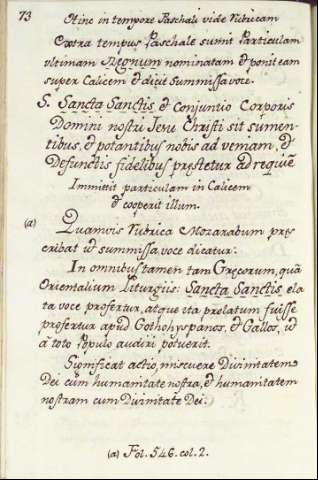 73
Hinc in tempore Paschali vide Rubricam
Extra tempus Paschale sumit Particulam
ultimam Regnum nominatam & ponit eam
super Calicem & dicit summissa voce.
S. Sancta Sanctis & conjuntio Corporis
Domini nostri Jesu Christi sit sumen-
tibus, & potantibus nobis ad veniam, &
Defunctis fidelibus prestetur ad requiē
Immitit particulam in Calicem
& cooperit illum.
(a) Quamvis Rubrica Mozarabum pres
cribat ut summissa voce dicatur:
In omnibus tamen tam Gręcorum, quā
Orientalium Liturgiis: Sancta Sanctis ela
ta voce profertur, atque ita prolatum fuisse
profertur apud Gothohyspanos, & Gallos, ut
a toto populo audiri potuerit.
Significat actio, miscuere Divinitatem
Dei cum humanitate nostra, & humanitatem
nostram cum Divinitate Dei.
(a) Fol. 546. col. 2.